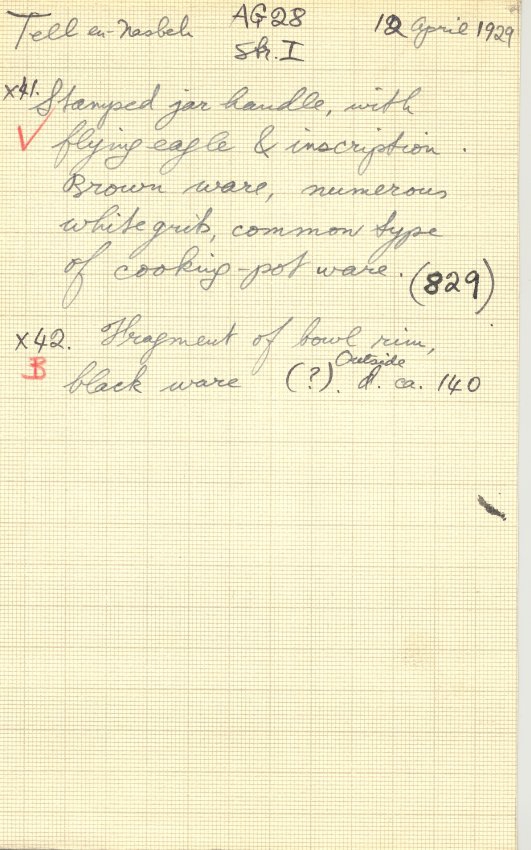 Tell en-Nasbeh AG28 12 April 1929
Str. I
x41. Stamped jar handle, with
flying eagle & inscription.
Brown ware, numerous
white grits, common type
of cooking-pot ware. (829)
x42. Fragment of bowl rim,
B Outside
black ware (?). d. ca. 140